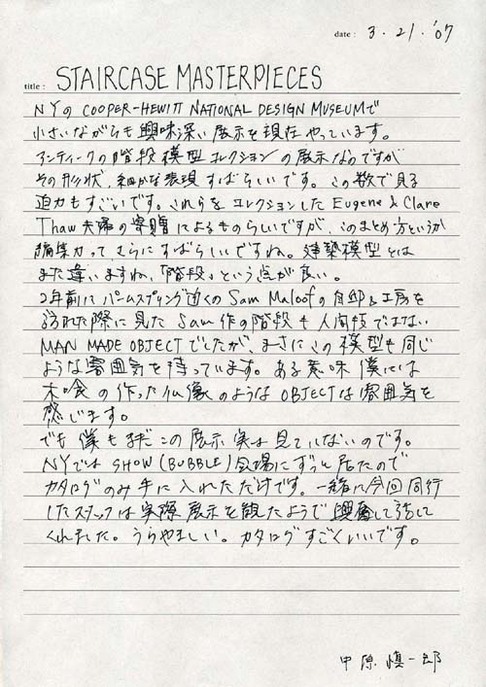 date : 3.21.'07
title : STAIRCASE MASTERPIECES
NYの COOPER-HEWITT NATIONAL DESIGN MUSEUMで
小さいながらも興味深い展示を現在やっています。
アンティークの階段模型コレクションの展示なのですが
その形状、細かな表現すばらしいです。この数で見る
迫力もすごいです。これらをコレクションした Eugene & Clare
Thaw夫婦の寄贈によるものらしいですが、このまとめ方というか
編集力ってさらにすばらしいですね。建築模型とは
また違いますね、「階段」という点が良い。
2年前にパームスプリング近くの Sam Maloofの自邸&工房を
訪れた際に見た Sam作の階段も人間技ではない
MAN MADE OBJECTでしたが、まさにこの模型も同じ
ような雰囲気を持っています。ある意味僕には
木喰の作った仏像のような OBJECTな雰囲気を
感じます。
でも僕もまだこの展示実は見ていないのです。
NYでは SHOW (BUBBLE) 会場にずっと居たので
カタログのみ手に入れただけです。一緒に今回同行
したスタッフは実際展示を観たようで興奮して話して
くれました。うらやましい。カタログすごくいいです。
中原慎一郎